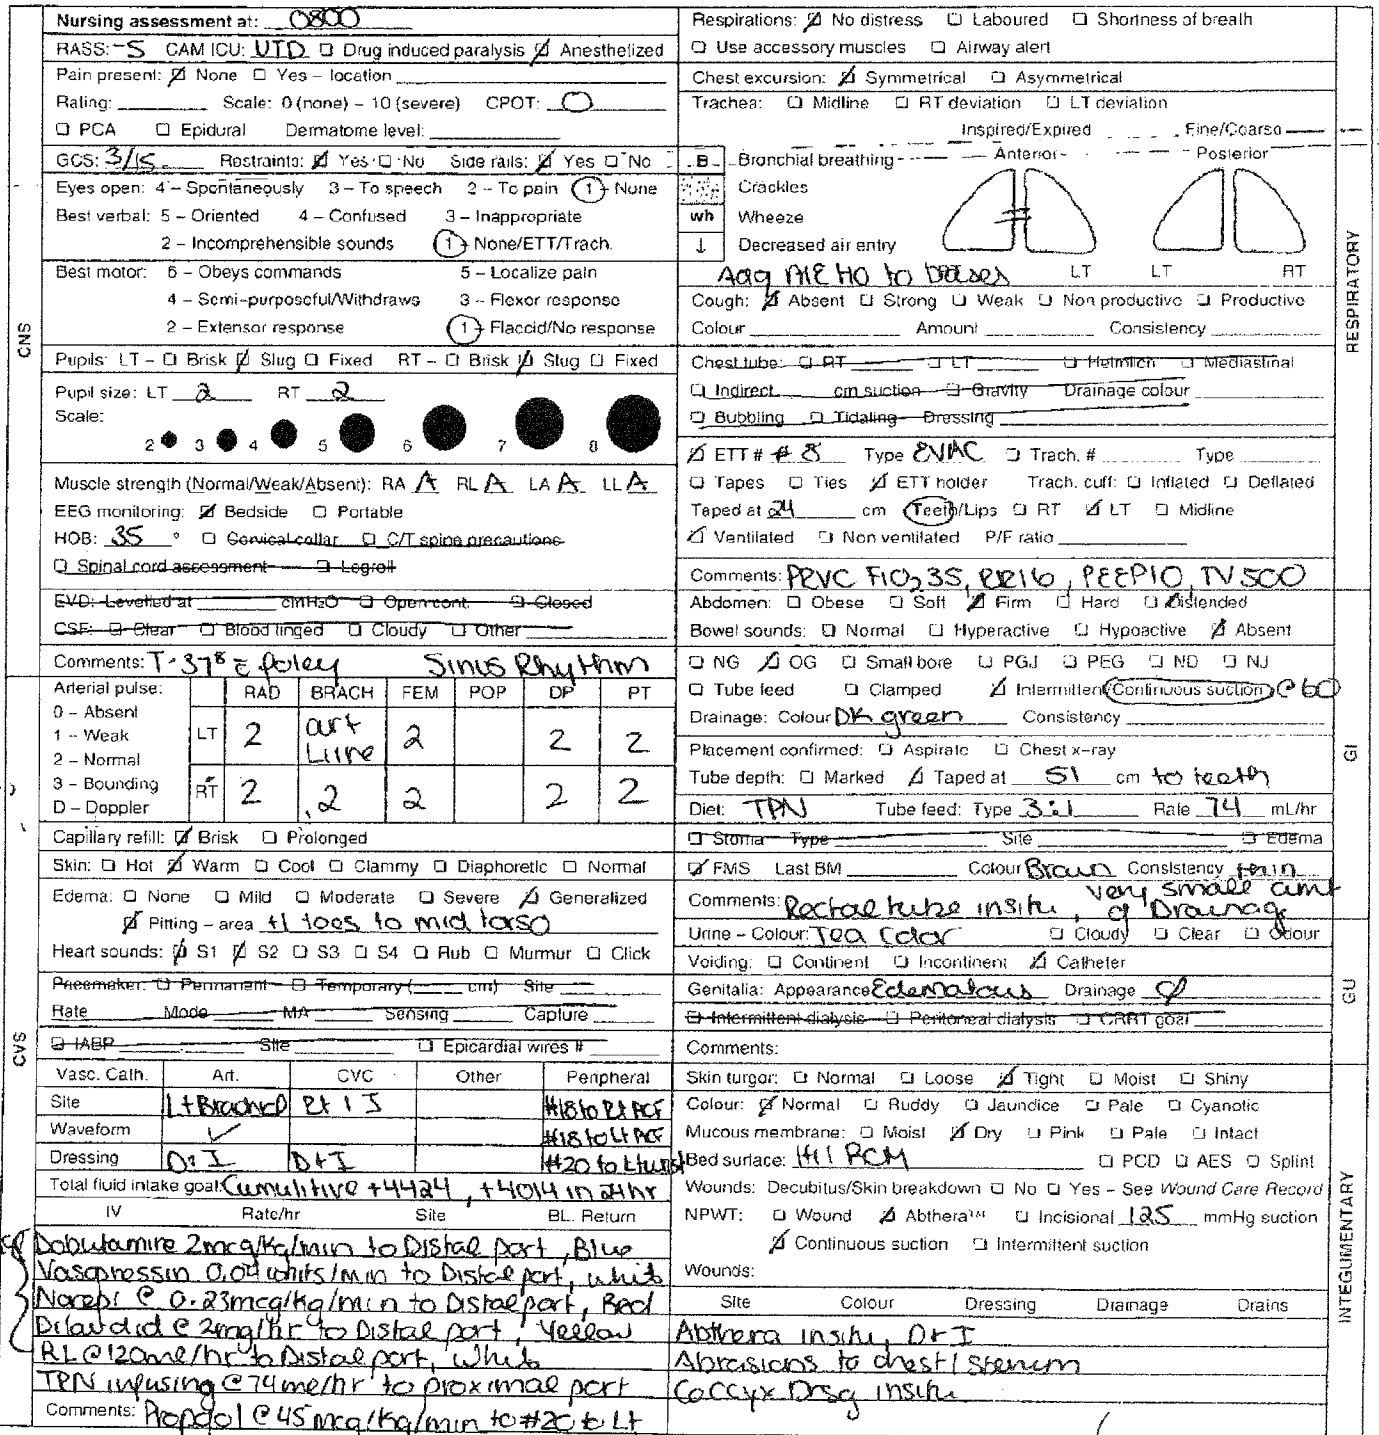 Nursing assessment at: 0800
RASS: -5 CAM ICU: UTD ☐ Drug induced paralysis ☑ Anesthetized
Pain present: ☑ None ☐ Yes – location
Rating: Scale: 0 (none) – 10 (severe) CPOT: 0
☐ PCA ☐ Epidural Dermatome level:
GCS: 3/15 Restraints: ☑ Yes ☐ No Side rails: ☑ Yes ☐ No
Eyes open: 4 – Spontaneously 3 – To speech 2 – To pain 1 – None
Best verbal: 5 – Oriented 4 – Confused 3 – Inappropriate
2 – Incomprehensible sounds 1 – None/ETT/Trach.
Best motor: 6 – Obeys commands 5 – Localize pain
4 – Semi-purposeful/Withdraws 3 – Flexor response
2 – Extensor response 1 – Flaccid/No response
CNS
Pupils: LT – ☐ Brisk ☑ Slug ☐ Fixed RT – ☐ Brisk ☑ Slug ☐ Fixed
Pupil size: LT 2 RT 2
Scale:
2 3 4 5 6 7 8
Muscle strength (Normal/Weak/Absent): RA A RL A LA A LL A
EEG monitoring: ☑ Bedside ☐ Portable
HOB: 35 ° ☐ Cervical collar ☐ C/T spine precautions
☐ Spinal cord assessment ☐ Logroll
EVD: Levelled at cmH2O ☐ Open cont. ☐ Closed
CSF: ☐ Clear ☐ Blood tinged ☐ Cloudy ☐ Other
Comments: T-37⁸ c̄ foley Sinus Rhythm
Arterial pulse: RAD BRACH FEM POP DP PT
0 – Absent
1 – Weak
2 – Normal
3 – Bounding
D – Doppler
LT 2 art Line 2 2 2
RT 2 2 2 2 2
Capillary refill: ☑ Brisk ☐ Prolonged
Skin: ☐ Hot ☑ Warm ☐ Cool ☐ Clammy ☐ Diaphoretic ☐ Normal
Edema: ☐ None ☐ Mild ☐ Moderate ☐ Severe ☑ Generalized
☑ Pitting – area +1 toes to mid torso
Heart sounds: ☑ S1 ☑ S2 ☐ S3 ☐ S4 ☐ Rub ☐ Murmur ☐ Click
Pacemaker: ☐ Permanent ☐ Temporary ( cm) Site
Rate Mode MA Sensing Capture
CVS
☐ IABP Site ☐ Epicardial wires #
Vasc. Cath. Art. CVC Other Peripheral
Site Lt Brachial Rt IJ #18 to Rt ACF
Waveform ✓ #18 to Lt ACF
Dressing D+I D+I #20 to Lt wrist
Total fluid intake goal: Cumulitive +4424, +4014 in 24hr
IV Rate/hr Site BL. Return
Dobutamire 2mcg/kg/min to Distal port, Blue
Vasopressin 0.04 units/min to Distal port, white
Norepi @ 0.23mcg/kg/min to Distal port, Red
Dilaudid @ 2mg/hr to Distal port, Yellow
RL @ 120ml/hr to Distal port, white
TPN infusing @ 74ml/hr to proximal port
Comments: Propofol @ 45 mcg/kg/min to #20 to Lt
Respirations: ☑ No distress ☐ Laboured ☐ Shortness of breath
☐ Use accessory muscles ☐ Airway alert
Chest excursion: ☑ Symmetrical ☐ Asymmetrical
Trachea: ☐ Midline ☐ RT deviation ☐ LT deviation
Inspired/Expired Fine/Coarse
B Bronchial breathing Anterior Posterior
Crackles
wh Wheeze
↓ Decreased air entry
LT LT RT
to bases
Cough: ☑ Absent ☐ Strong ☐ Weak ☐ Non productive ☐ Productive
Colour Amount Consistency
RESPIRATORY
Chest tube: ☐ RT ☐ LT ☐ Heimlich ☐ Mediastinal
☐ Indirect cm suction ☐ Gravity Drainage colour
☐ Bubbling ☐ Tidaling Dressing
☑ ETT # # 8 Type EVAC ☐ Trach. # Type
☐ Tapes ☐ Ties ☑ ETT holder Trach. cuff: ☐ Inflated ☐ Deflated
Taped at 24 cm Teeth/Lips ☐ RT ☑ LT ☐ Midline
☑ Ventilated ☐ Non ventilated P/F ratio
Comments: PRVC FIO2 35, RR16, PEEP10, TV 500
Abdomen: ☐ Obese ☐ Soft ☑ Firm ☐ Hard ☑ Distended
Bowel sounds: ☐ Normal ☐ Hyperactive ☐ Hypoactive ☑ Absent
☐ NG ☑ OG ☐ Small bore ☐ PGJ ☐ PEG ☐ ND ☐ NJ
☐ Tube feed ☐ Clamped ☑ Intermittent/Continuous suction @ 60
Drainage: Colour DK green Consistency
Placement confirmed: ☐ Aspirate ☐ Chest x-ray
Tube depth: ☐ Marked ☑ Taped at 51 cm to teeth
GI
Diet: TPN Tube feed: Type 3:1 Rate 74 mL/hr
☐ Stoma Type Site ☐ Edema
☑ FMS Last BM Colour Brown Consistency thin
Comments: Rectal tube insitu, very small amt of Drainage
Urine – Colour: Tea Color ☐ Cloudy ☐ Clear ☐ Odour
Voiding: ☐ Continent ☐ Incontinent ☑ Catheter
Genitalia: Appearance Edematous Drainage ∅
☐ Intermittent dialysis ☐ Peritoneal dialysis ☐ CRRT goal
Comments:
GU
Skin turgor: ☐ Normal ☐ Loose ☑ Tight ☐ Moist ☐ Shiny
Colour: ☑ Normal ☐ Ruddy ☐ Jaundice ☐ Pale ☐ Cyanotic
Mucous membrane: ☐ Moist ☑ Dry ☐ Pink ☐ Pale ☐ Intact
Bed surface: PCM ☐ PCD ☐ AES ☐ Splint
Wounds: Decubitus/Skin breakdown ☐ No ☐ Yes – See Wound Care Record
NPWT: ☐ Wound ☑ Abthera™ ☐ Incisional 125 mmHg suction
☑ Continuous suction ☐ Intermittent suction
Wounds:
Site Colour Dressing Drainage Drains
Abthera insitu, D+I
Abrasions to chest/sternum
Coccyx Drsg insitu
INTEGUMENTARY